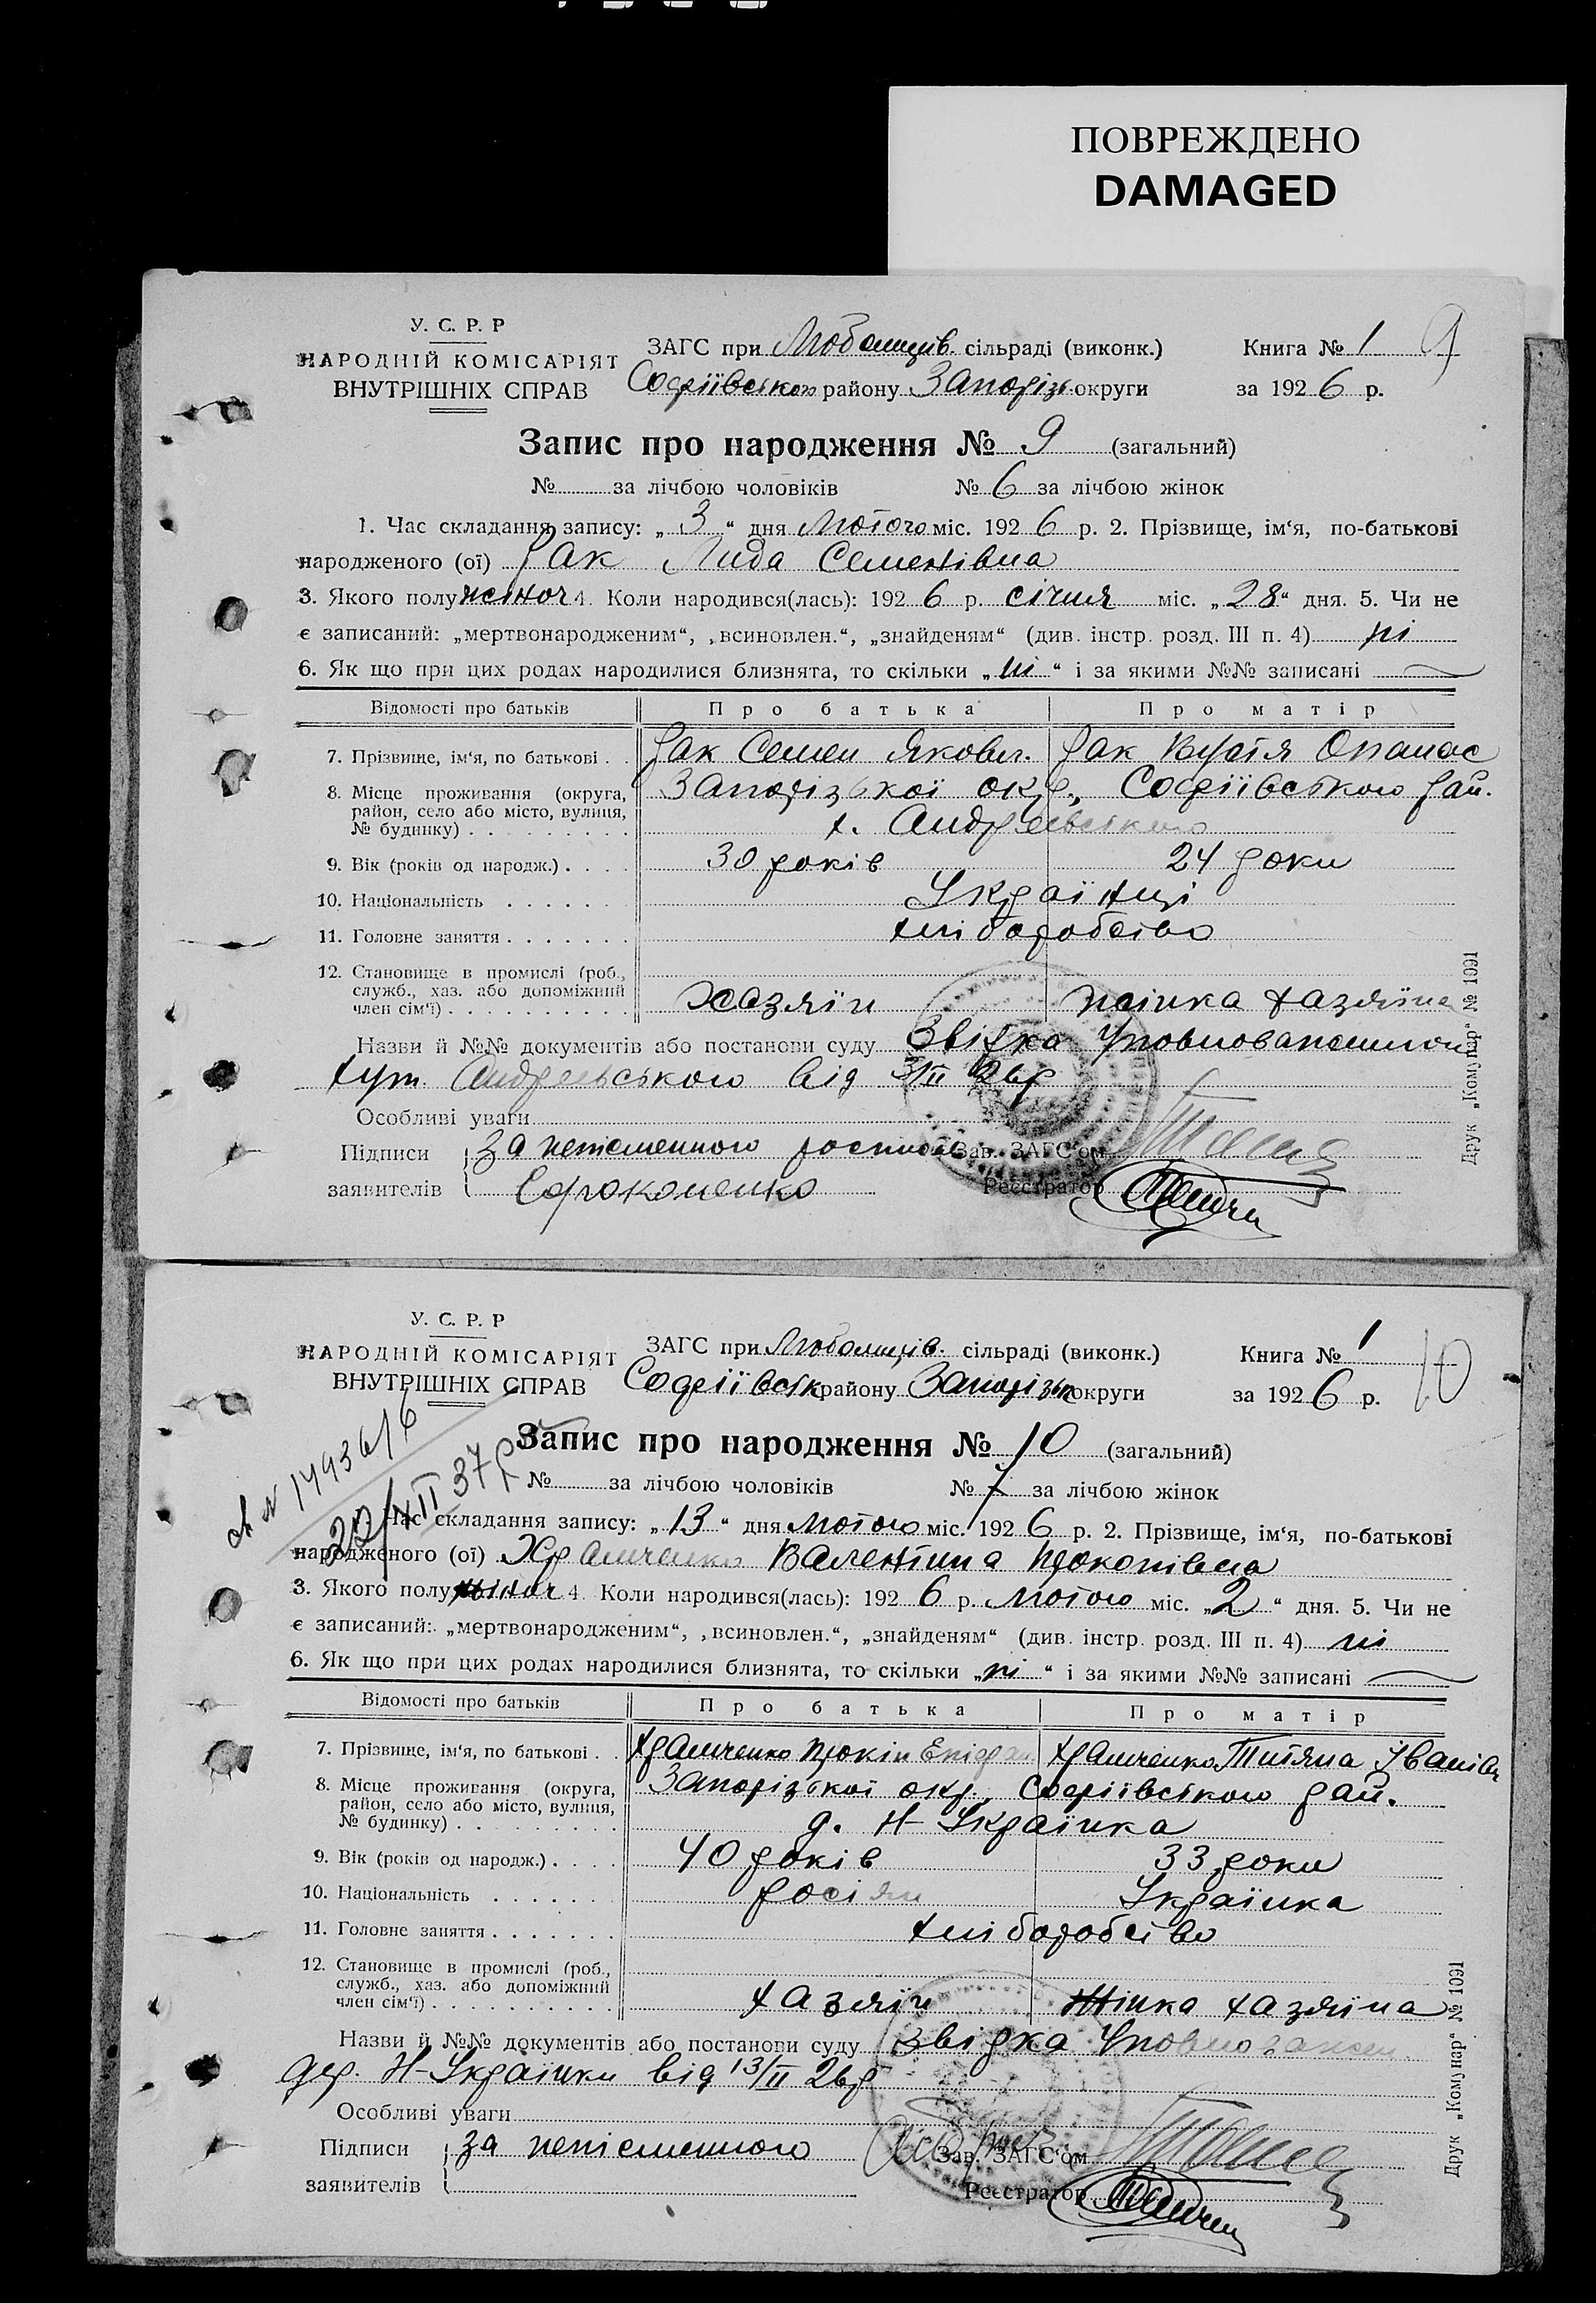 ПОВРЕЖДЕНО
DAMAGED
У. С. Р. Р
НАРОДНІЙ КОМІСАРІЯТ
ВНУТРІШНІХ СПРАВ
ЗАГС при Любомирів. сільраді (виконк.)
Софіївського району Запоріз. округи
Книга № 1 9
за 1926 р.
Запис про народження № 9 (загальний)
№ за лічбою чоловіків № 6 за лічбою жінок
1. Час складання запису: „3“ дня Лютого міс. 1926 р. 2. Прізвище, ім‘я, по-батькові
народженого (ої) Рак Лида Семенівна
3. Якого полу жіноч 4. Коли народився(лась): 1926 р. січня міс. „28“ дня. 5. Чи не
є записаний: „мертвонародженим“, „всиновлен.“, „знайденям“ (див. інстр. розд. III п. 4) ні
6. Як що при цих родах народилися близнята, то скільки „ні“ і за якими №№ записані
Відомості про батьків Про батька Про матір
7. Прізвище, ім‘я, по батькові . . Рак Семен Яковл. Рак Опанас
8. Місце проживання (округа, район, село або місто, вулиця, № будинку) Запорізької окр., Софіївського рай.
х. Андреєвського
9. Вік (років од народж.) 30 років 24 роки
10. Національність Українці
11. Головне заняття хліборобство
12. Становище в промислі (роб., служб., хаз. або допоміжний член сім‘ї) Хазяїн жінка хазяїна
Назви й №№ документів або постанови суду Звідка Уповноваженного
хут. Андреєвського від 3/II 26р
Особливі уваги
Підписи за неписьменного Зав. ЗАГС‘ом
заявителів Сорокопенко Реєстратор
Друк „Комунар“ № 1091
У. С. Р. Р
НАРОДНІЙ КОМІСАРІЯТ
ВНУТРІШНІХ СПРАВ
ЗАГС при Любомирів. сільраді (виконк.)
Софіївськ району Запорізьк округи
Книга № 1
за 1926 р. 10
Запис про народження № 10 (загальний)
№ за лічбою чоловіків № 7 за лічбою жінок
Час складання запису: „13“ дня Лютого міс. 1926 р. 2. Прізвище, ім‘я, по-батькові
народженого (ої) Храмченко Валентина Прокопівна
3. Якого полу жіноч 4. Коли народився(лась): 1926 р. Лютого міс. „2“ дня. 5. Чи не
є записаний: „мертвонародженим“, „всиновлен.“, „знайденям“ (див. інстр. розд. III п. 4) ні
6. Як що при цих родах народилися близнята, то скільки „ні“ і за якими №№ записані
Відомості про батьків Про батька Про матір
7. Прізвище, ім‘я, по батькові . . Храмченко Прокіп Епіфан Храмченко Титяна Іванівн
8. Місце проживання (округа, район, село або місто, вулиця, № будинку) Запорізької окр., Софіївського рай.
д. Н-Українка
9. Вік (років од народж.) 40 років 33 роки
10. Національність росіян Українка
11. Головне заняття хліборобство
12. Становище в промислі (роб., служб., хаз. або допоміжний член сім‘ї) хазяїн Жінка хазяїна
Назви й №№ документів або постанови суду Звідка Уповноважен
дер. Н-Українки від 13/II 26р
Особливі уваги
Підписи за неписьменного Зав. ЗАГС‘ом
заявителів Реєстратор
Друк „Комунар“ № 1091